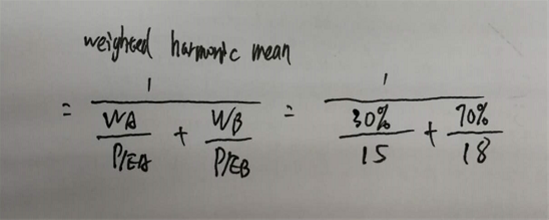 weighted harmonic mean
= 1 / (WA / P/EA + WB / P/EB) = 1 / (30% / 15 + 70% / 18)